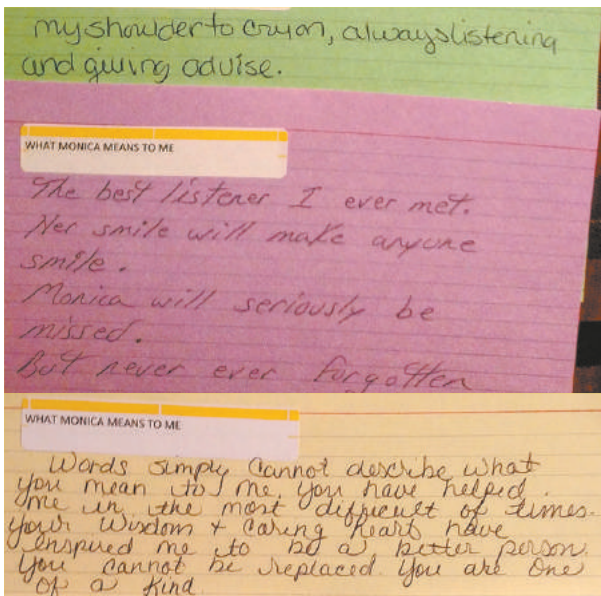 my shoulder to cry on, always listening
and giving advise.
WHAT MONICA MEANS TO ME
The best listener I ever met.
Her smile will make anyone
smile.
Monica will seriously be
missed.
But never ever forgotten
WHAT MONICA MEANS TO ME
Words simply cannot describe what
you mean to me. You have helped
me in the most difficult of times.
your wisdom + caring heart have
inspired me to be a better person.
You cannot be replaced. You are one
of a kind